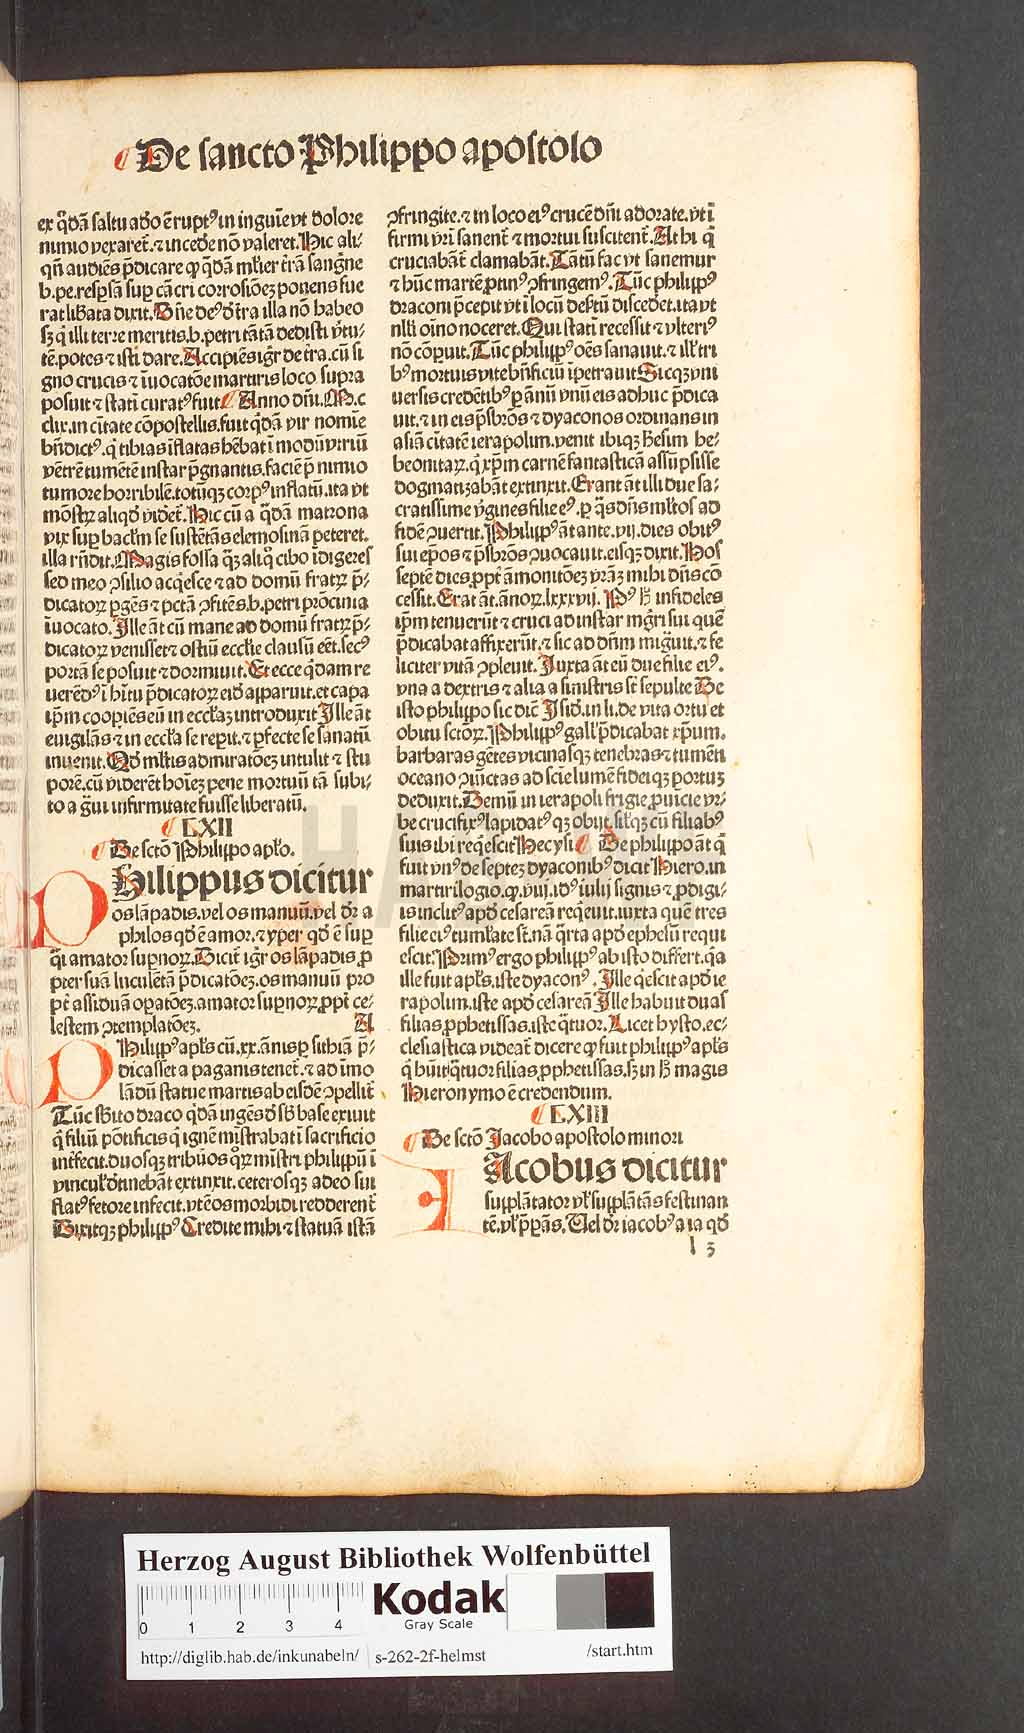 De sancto Philippo apostolo
ex q̃dã saltu adeo ẽrupt⁹ in inguĩe vt dolore
nimio vexaret̃. ⁊ incedẽ nõ valeret. Hic ali-
qñ audiẽs p̃dicare ꝙ q̃dã mľier t̃rã sang̃ne
b. pe. resꝑsã suꝑ cãcri corrosiõeʒ ponens fue
rat lib̃ata dixit. Dñe de⁹ õ tra illa nõ habeo
sʒ q̃ illi terre meritis. b. petri tãtã dedisti v̓tu-
tẽ. potes ⁊ isti dare. Accipiẽs igr̃ de tra. cũ si
gno crucis ⁊ ĩuocatõe martiris loco supra
posuit ⁊ stati curat⁹ fuit Anno dñi. M. c
clix. in cĩtate cõpostellis. fuit q̃dã vir nomĩe
bñdict⁹. q̃ tibias ĩflatas hẽbat ĩ modũ vtriũ
vẽtrẽ tumẽtẽ instar p̃gnantis. faciẽ p̃ nimio
tumore horribilẽ. totũqʒ corp⁹ inflatũ. ita vt
mõstrꝝ aliqđ vidẽt. Hic cũ a q̃dã matrona
vix suꝑ bacľm se sustẽtãs elemosinã peteret.
illa rñdit. Magis fossa qʒ aliq̃ cibo ĩdigeres
sed meo ↄsilio acq̃esce ⁊ ad domũ fratrꝝ p̃-
dicatoꝝ ꝑgẽs ⁊ pctã ↄfitẽs. b. petri prõcinia
ĩuocato. Ille ãt cũ mane ad domũ fratrꝝ p̃-
dicatoꝝ venisset ⁊ ostiũ eccľie clausũ eẽt. sec⁹
portã se posuit ⁊ dormiuit. Et ecce q̃dam re
uerẽd⁹ ĩ hĩtu p̃dicatoꝝ eiđ apparuit. et capa
ip̃m coopiẽs eũ in eccľaʒ introduxit Ille ãt
euigilãs ⁊ in eccľia se reꝑit. ⁊ ꝑfecte se sanatũ
inuenit. Qđ mľtis admiratõeʒ intulit ⁊ stu
porẽ. cũ viderẽt hoĩeʒ pene mortuũ tã subi-
to a g̃ui infirmitate fuisse liberatũ.
LXII
De sctõ Philippo apľo.
Philippus dicitur
os lãpadis. vel os manuũ. vel dr̃ a
philos qđ ẽ amoꝛ. ⁊ yper qđ ẽ suꝑ
q̃i amatoꝛ supnoꝝ. Dicit̃ igr̃ os lãpadis. ꝓ
pter suã luculẽtã p̃dicatõeʒ. os manuũ pro
pt̃ assiduã oꝑatõeʒ. amatoꝛ supnoꝝ. ꝓpt̃ ce-
lestem ↄtemplatõeʒ. A
Philipp⁹ apľs cũ. xx. ãnis ꝑ sithiã p̃-
dicasset a paganis tenet̃. ⁊ ad ĩmo
lãdũ statue martis ab eisdẽ ↄpellit̃
Tũc sb̃ito draco q̃dã ingẽs đ sb̃ base exiuit
q̃ filiũ põtificis q̃ ignẽ mĩstrabat ĩ sacrificio
int̃fecit. duosqʒ tribũos q̃ꝝ mĩstri philippũ ĩ
vinculʼ đtinebãt extinxit. ceterosqʒ adeo sui
flat⁹ fetore infecit. vt eos morbidi redderent̃
Dixitqʒ philipp⁹ Credite mihi ⁊ statuã istã
ↄfringite. ⁊ in loco ei⁹ crucẽ dñi adorate. vt ĩ
firmi vr̃i sanent̃ ⁊ mortui suscitent̃. At hi q̃
cruciabãt̃ clamabãt. Tãtũ fac vt sanemur
⁊ hũc martẽ ꝓtin⁹ ↄfringem⁹. Tũc philipp⁹
draconi p̃cepit vt ĩ locũ deỹtũ discedẽt. ita vt
nľli oĩno noceret. Qui stati recessit ⁊ vlteri⁹
nõ cõꝑuit. Tũc philipp⁹ oẽs sanauit. ⁊ illʼ tri
b⁹ mortuis vite bñficiũ ĩpetrauit Sicqʒ vni
uersis credẽtib⁹ ꝑ ãnũ vnũ eis adhuc p̃dica
uit. ⁊ in eis p̃sb̃ros ⁊ dyaconos ordinans in
asiã cĩtatẽ ierapolim. venit ibiqʒ h̓esim he-
beonitaꝝ. q̃ xp̃m carnẽ fantasticã assũpsisse
dogmatizabãt extinxit. Erant ãt illi due sa-
cratissime v̓gines filie ei⁹. ꝑ q̃s dñs mľtos ad
fidẽ ↄuertit. Philipp⁹ ãt ante. vij. dies obit⁹
sui ep̃os ⁊ p̃sb̃ros ↄuocauit. eisqʒ dixit. Hos
septẽ dies. ꝓpt̃ ãmonitõeʒ vr̃ãʒ mihi dñs cõ
cessit. Erat ãt. ãnoꝝ. lxxxvij. P⁹ h̃ infideles
ip̃m tenuerũt ⁊ cruci ad instar mg̃ri sui quẽ
p̃dicabat affixerũt. ⁊ sic ad dñm mig̃uit. ⁊ fe
liciter vitã ↄpleuit. Juxta ãt eũ due filie ei⁹.
vna a dextris ⁊ alia a sinistris st̃ sepulte De
isto philippo sic dic̃ Isiđ. in li. de vita ortu et
obitu sctõꝝ. Philipp⁹ gallʼ p̃dicabat xp̃um.
barbaras gẽtes vicinasqʒ tenebras ⁊ tumẽti
oceano ↄiũctas ad sciẽ lumẽ fideiqʒ portuʒ
deduxit. Demũ in ierapoli frigie ꝓuĩcie vr-
be crucifix⁹ lapidat⁹qʒ obijt. silʼqʒ cũ filiab⁹
suis ibi req̃escit Hec ysiđ De philippo ãt q̃
fuit vn⁹ de septeʒ dyaconib⁹ dicit Hiero. in
martirilogio. ꝙ. viij. id⁹ iulij signis ⁊ ꝓdigi-
is inclit⁹ apđ cesareã req̃euit. iuxta quẽ tres
filie ei⁹ tumľate st̃. nã q̃rta apđ ephesũ requi
escit. Prim⁹ ergo philipp⁹ ab isto differt. qa
ille fuit apľs. iste dyacon⁹. Ille q̃escit apđ ie
rapolim. iste apđ cesareã Ille habuit duas
filias. ꝓphetissas. iste q̃tuor. Licet hysto. ec-
clesiastica videat̃ dicere ꝙ fuit philipp⁹ apľs
q̃ hũit q̃tuor filias. ꝓphetissas. sʒ in h̃ magis
Hieronymo ẽ credendum.
LXIII
De sctõ Jacobo apostolo minori
IAcobus dicitur
supplãtator vľ supplãtãs festinan
tẽ. vľ p̃ꝑãs. Uel dr̃ iacob⁹ a ia qđ
l 3
HAB WF
Herzog August Bibliothek Wolfenbüttel
0 1 2 3 4
Kodak
Gray Scale
http://diglib.hab.de/inkunabeln/ s-262-2f-helmst /start.htm